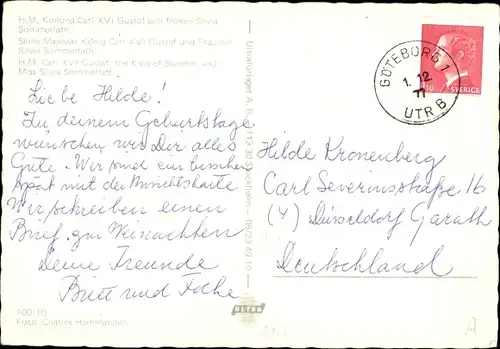 H.M. Konung Carl XVI Gustaf och fröken Silvia
Sommerlath.
Seine Majestät König Carl XVI Gustaf und Fräulein
Silvia Sommerlath.
H.M. Carl XVI Gustaf, the King of Sweden, and
Miss Silvia Sommerlath.
Liebe Hilde!
Zu deinem Geburtstage
wünschen wir Dir alles
Gute. Wir sind ein bisschen
spät mit der
Wir schreiben einen
Brief zu Weinachten
Deine Freunde
Britt und Focke
100/10
Foto: Charles Hammarsten
ULTRA
GÖTEBORG 1
1. 12
77
UTR B
SVERIGE
Hilde Kronenberg
Carl Severinsstraße 16
(4) Düsseldorf Garath
Deutschland